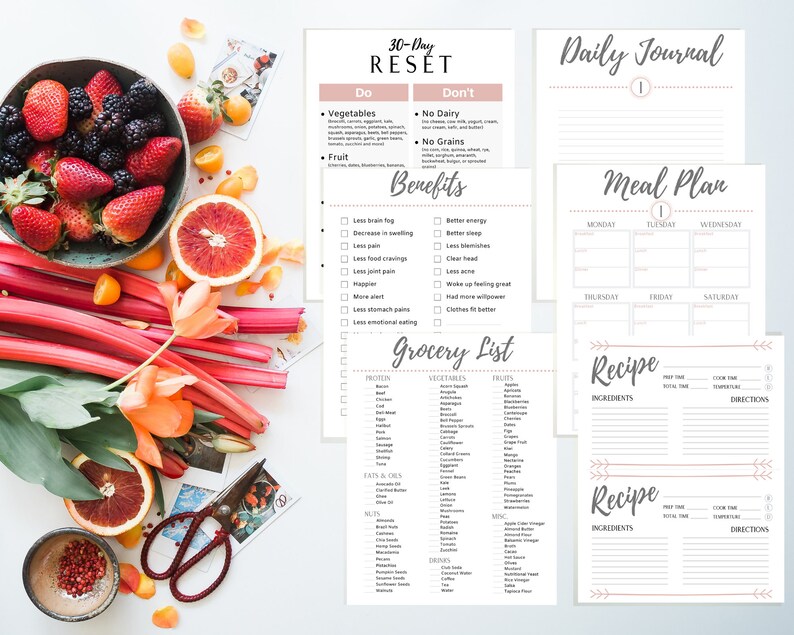 30-Day
RESET
Do
Don't
• Vegetables
(brocoli, carrots, eggplant, kale,
mushrooms, onion, potatoes, spinach,
squash, asparagus, beets, bell peppers,
brussels sprouts, garlic, green beans,
tomato, zucchini and more)
• Fruit
(cherries, dates, blueberries, bananas,
• No Dairy
(no cheese, cow milk, yogurt, cream,
sour cream, kefir, and butter)
• No Grains
(no corn, rice, quinoa, wheat, rye,
millet, sorghum, amaranth,
buckwheat, bulgur, or sprouted
grains)
Daily Journal
1
Benefits
Less brain fog
Decrease in swelling
Less pain
Less food cravings
Less joint pain
Happier
More alert
Less stomach pains
Less emotional eating
Better energy
Better sleep
Less blemishes
Clear head
Less acne
Woke up feeling great
Had more willpower
Clothes fit better
Meal Plan
1
MONDAY TUESDAY WEDNESDAY
Breakfast Breakfast Breakfast
Lunch Lunch Lunch
Dinner Dinner Dinner
THURSDAY FRIDAY SATURDAY
Breakfast Breakfast Breakfast
Lunch Lunch Lunch
Grocery List
PROTEIN
Bacon
Beef
Chicken
Cod
Deli-Meat
Eggs
Halibut
Pork
Salmon
Sausage
Shellfish
Shrimp
Tuna
FATS & OILS
Avocado Oil
Clarified Butter
Ghee
Olive Oil
NUTS
Almonds
Brazil Nuts
Cashews
Chia Seeds
Hemp Seeds
Macadamia
Pecans
Pistachios
Pumpkin Seeds
Sesame Seeds
Sunflower Seeds
Walnuts
VEGETABLES
Acorn Squash
Arugula
Artichokes
Asparagus
Beets
Broccoli
Bell Pepper
Brussels Sprouts
Cabbage
Carrots
Cauliflower
Celery
Collard Greens
Cucumbers
Eggplant
Fennel
Green Beans
Kale
Leek
Lemons
Lettuce
Onion
Mushrooms
Peas
Potatoes
Radish
Romaine
Spinach
Tomato
Zucchini
DRINKS
Club Soda
Coconut Water
Coffee
Tea
Water
FRUITS
Apples
Apricots
Bananas
Blackberries
Blueberries
Canteloupe
Cherries
Dates
Figs
Grapes
Grape Fruit
Kiwi
Mango
Nectarine
Oranges
Peaches
Pears
Plums
Pineapple
Pomegranates
Strawberries
Watermelon
MISC.
Apple Cider Vinegar
Almond Butter
Almond Flour
Balsamic Vinegar
Broth
Cacao
Hot Sauce
Olives
Mustard
Nutritional Yeast
Rice Vinegar
Salsa
Tapioca Flour
Recipe
PREP TIME COOK TIME
TOTAL TIME TEMPERTURE
B
L
D
INGREDIENTS DIRECTIONS
Recipe
PREP TIME COOK TIME
TOTAL TIME TEMPERTURE
B
L
D
INGREDIENTS DIRECTIONS